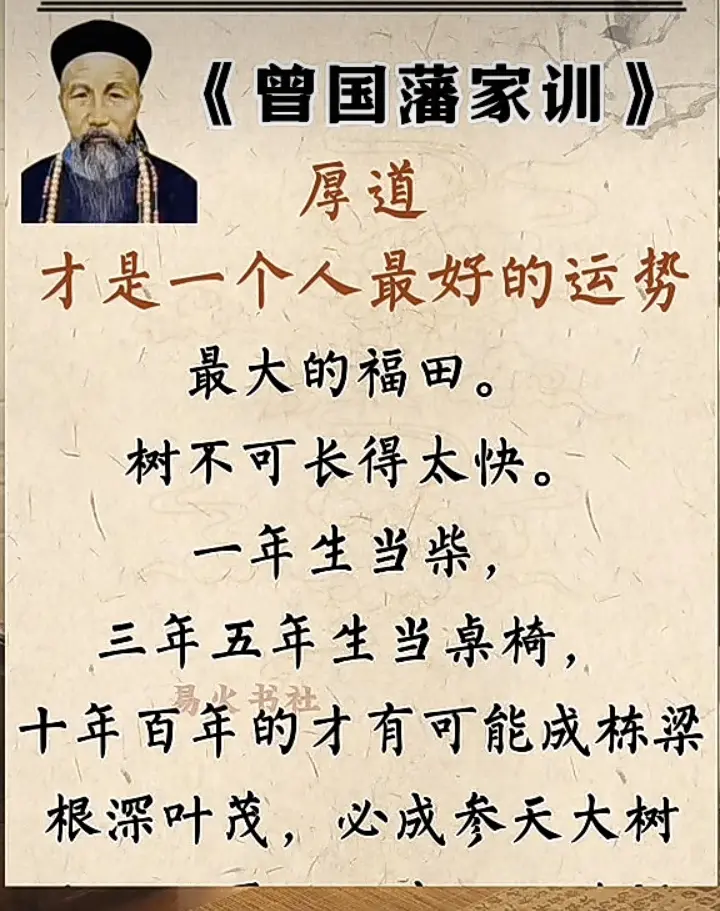 《曾国藩家训》
厚道
才是一个人最好的运势
最大的福田。
树不可长得太快。
一年生当柴，
三年五年生当桌椅，
易火书社
十年百年的才有可能成栋梁
根深叶茂，必成参天大树